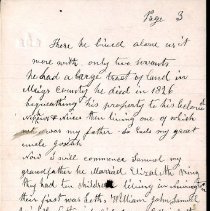 Page 3
There he lived alone as it
were with only two servants
he had a large tract of land in
Meigs County he died in 1826
bequeathing his property to his
Nephew & Nieces then living one of which
was my father. So ends my great
uncle Josiah
Now I will commence Samuel my
grandfather he Married Elizabeth
they had ten children
their first was Seth, William John Samuel